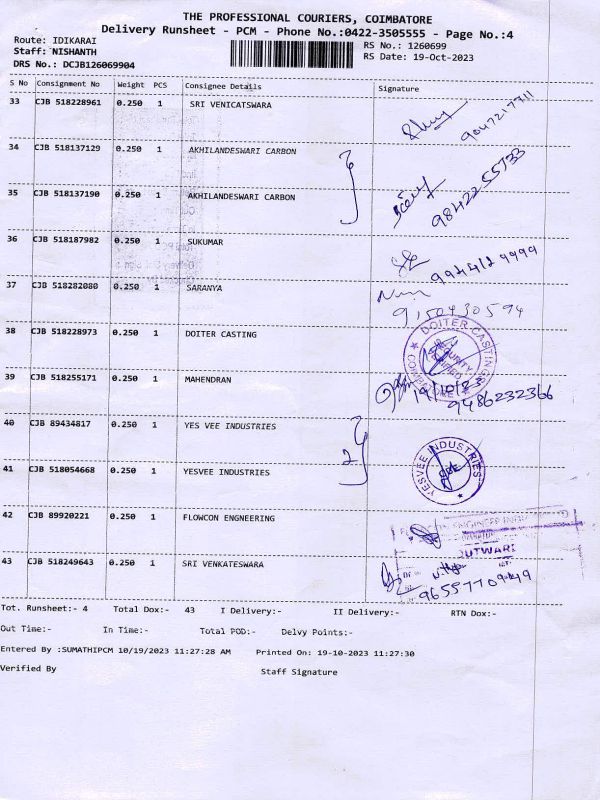 THE PROFESSIONAL COURIERS, COIMBATORE
Delivery Runsheet - PCM - Phone No.:0422-3505555 - Page No.:4
Route: IDIKARAI
RS No.: 1260699
Staff: NISHANTH
RS Date: 19-Oct-2023
DRS No.: DCJB126069904
S No Consignment No Weight PCS Consignee Details Signature
33 CJB 518228961 0.250 1 SRI VENICATSWARA
9047217711
34 CJB 518137129 0.250 1 AKHILANDESWARI CARBON
35 CJB 518137190 0.250 1 AKHILANDESWARI CARBON
9842255733
36 CJB 518187982 0.250 1 SUKUMAR
37 CJB 518282080 0.250 1 SARANYA
9150430594
38 CJB 518228973 0.250 1 DOITER CASTING
DOITER CASTINGS
COIMBATORE
39 CJB 518255171 0.250 1 MAHENDRAN
19/10/23
9486232366
40 CJB 89434817 0.250 1 YES VEE INDUSTRIES
2
41 CJB 518054668 0.250 1 YESVEE INDUSTRIES
YESVEE INDUSTRIES
42 CJB 89920221 0.250 1 FLOWCON ENGNEERING
43 CJB 518249643 0.250 1 SRI VENKATESWARA
Tot. Runsheet:- 4 Total Dox:- 43 I Delivery:- II Delivery:- RTN Dox:-
Out Time:- In Time:- Total POD:- Delvy Points:-
Entered By :SUMATHIPCM 10/19/2023 11:27:28 AM Printed On: 19-10-2023 11:27:30
Verified By Staff Signature